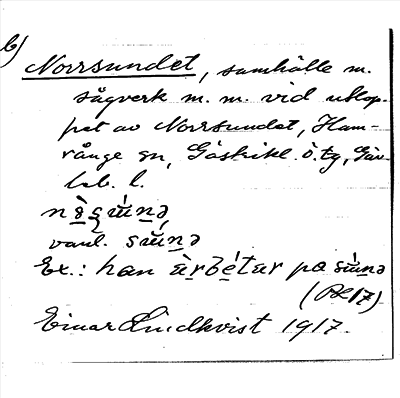 b)
Norrsundet, samhälle m.
sågverk m. m. vid utlop-
pet av Norrsundet, Ham-
rånge sn, Gästrikl. ö. tg, Gäv-
leb. l.
vanl.
Ex.: han på
Einar Lindkvist 1917.